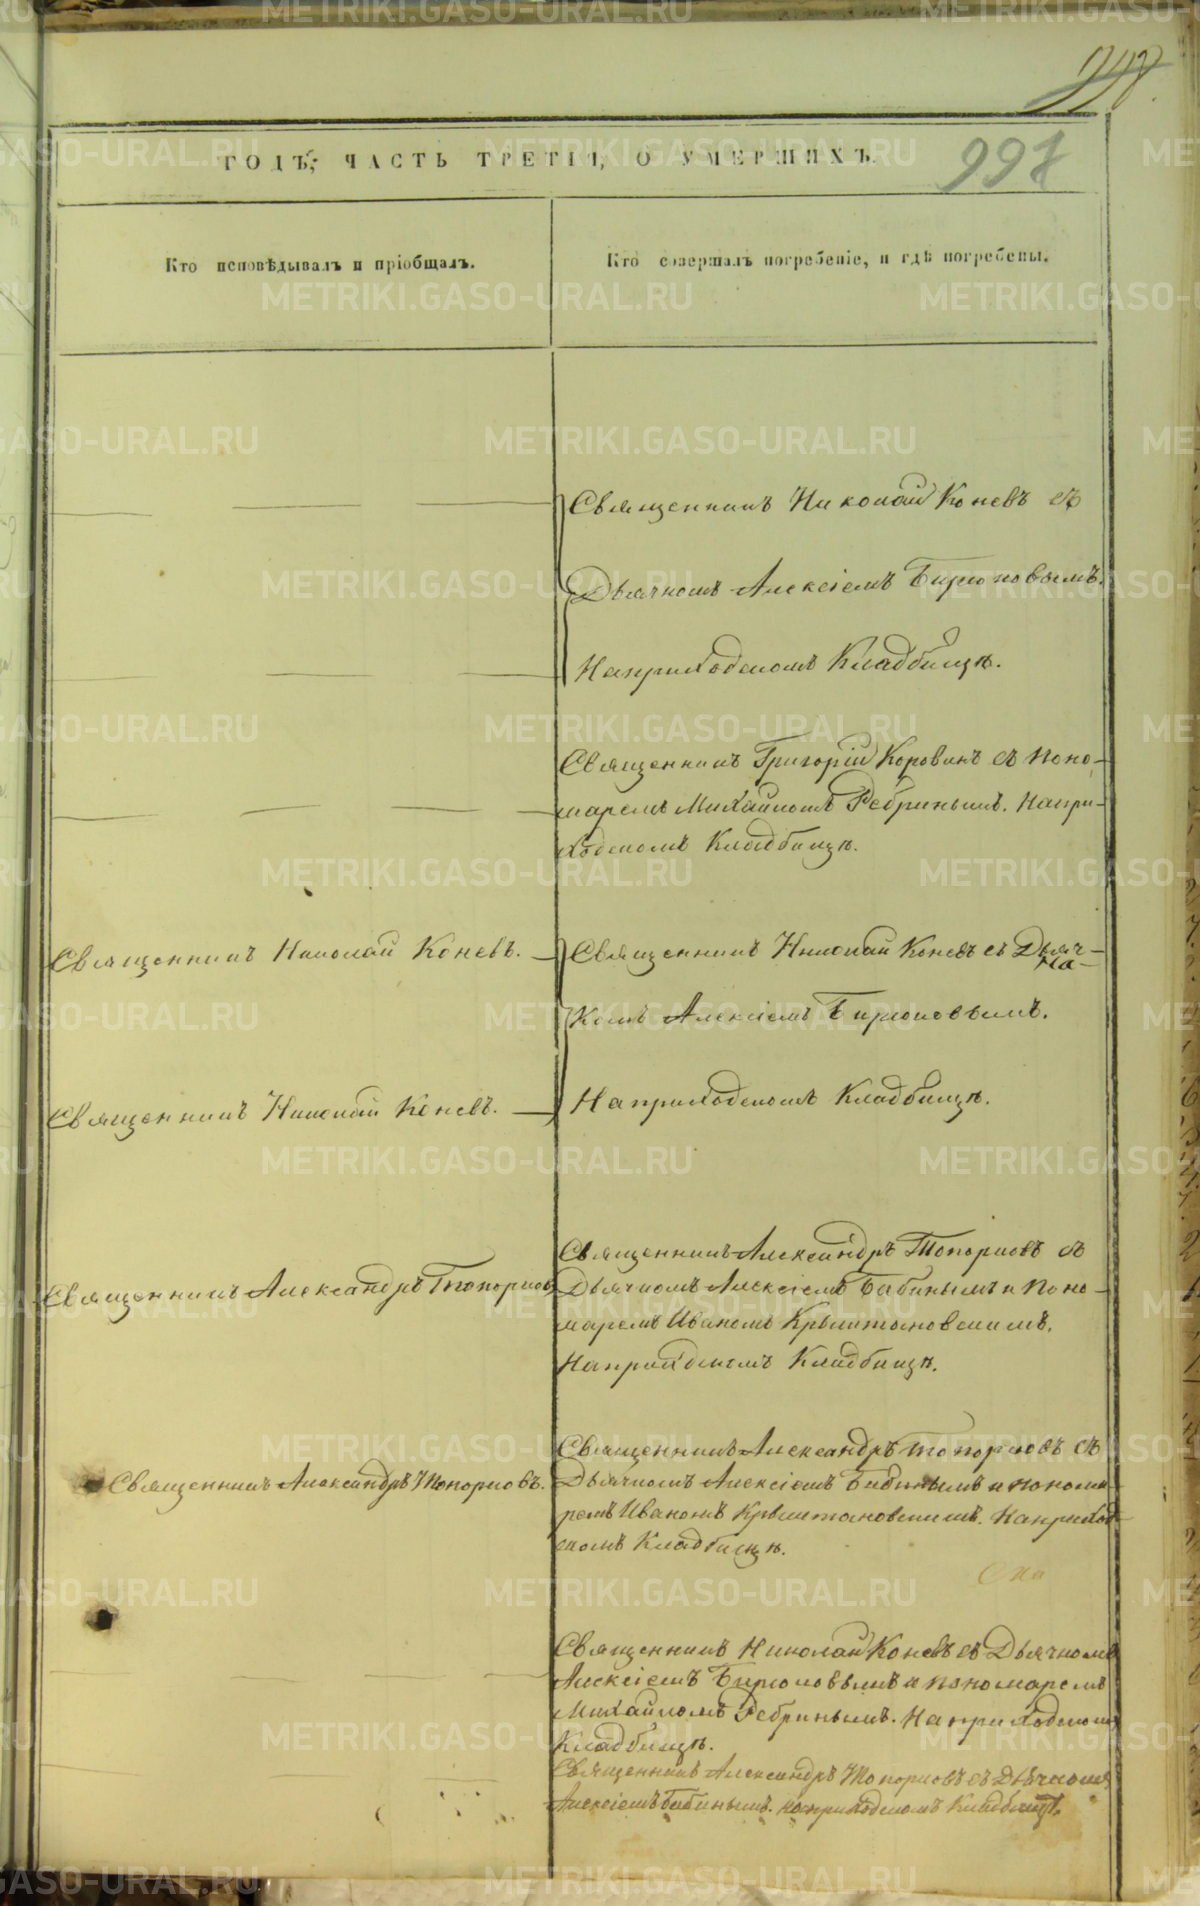 997
ГОДЪ, ЧАСТЬ ТРЕТІЯ, О УМЕРШИХЪ.
Кто исповѣдывалъ и пріобщалъ.
Кто совершалъ погребеніе, и гдѣ погребены.
Священникъ Николай Коневъ съ
Дьячкомъ Алексіемъ Бирюковымъ.
На приходскомъ Кладбищѣ.
Священникъ Григорій Коровинъ съ поно-
маремъ Михайломъ Ребринымъ. На при-
ходскомъ Кладбищѣ.
Священникъ Николай Коневъ.
Священникъ Николай Коневъ съ Дьяч-
комъ Алексіемъ Бирюковымъ.
Священникъ Николай Коневъ.
На приходскомъ Кладбищѣ.
Священникъ Александръ Топорковъ
Священникъ Александръ Топорковъ съ
Дьячкомъ Алексіемъ Бабинымъ и поно-
маремъ Иваномъ Крыштановскимъ.
На приходскомъ Кладбищѣ.
Священникъ Александръ Топорковъ.
Священникъ Александръ Топорковъ съ
Дьячкомъ Алексіемъ Бабинымъ и понома-
ремъ Иваномъ Крыштановскимъ. На приход-
скомъ Кладбищѣ.
Священникъ Николай Коневъ съ Дьячкомъ
Алексіемъ Бирюковымъ и пономаремъ
Михайломъ Ребринымъ. На приходскомъ
Кладбищѣ.
Священникъ Александръ Топорковъ съ Дьячкомъ
Алексіемъ Бабинымъ. на приходскомъ Кладбищѣ.
METRIKI.GASO-URAL.RU